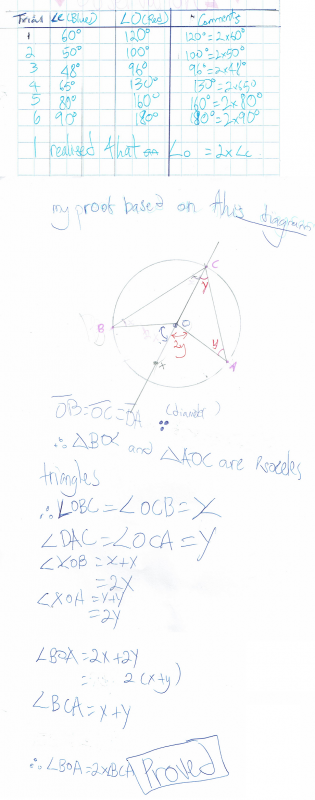 Trial ∠C (Blue) ∠O (Red) Comments
1 60° 120° 120° = 2x60°
2 50° 100° 100° = 2x50°
3 48° 96° 96° = 2x48°
4 65° 130° 130° = 2x65°
5 80° 160° 160° = 2x80°
6 90° 180° 180° = 2x90°
I realized that ∠O = 2x∠C
my proof based on this diagram
C
y
B
O
2y
y
A
X
OB = OC = OA (diameter)
∴ △BOC and △AOC are Isosceles
triangles
∴ ∠OBC = ∠OCB = X
∠OAC = ∠OCA = Y
∠XOB = x+x
= 2x
∠XOA = y+y
= 2y
∠BOA = 2x + 2y
= 2(x+y)
∠BCA = x+y
∴ ∠BOA = 2x∠BCA Proved